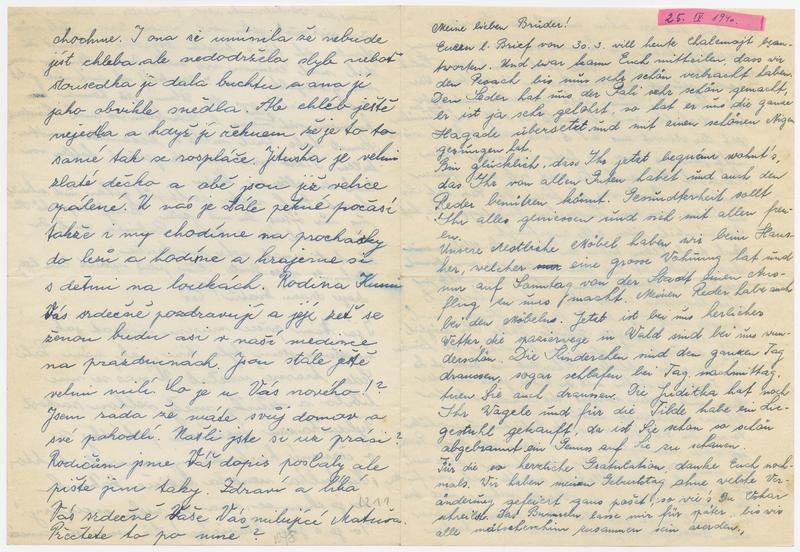 chochme. I ona si umínila že nebude
jíst chleba ale nedodržela slyb neboť
sousedka jí dala buchtu a ona jí
jako obvikle snědla. Ale chléb ještě
nejedla a když jí řeknem že je to to
samé tak se rospláče. Jituška je velmi
zlaté děcko a obě jsou již velice
opálené. U nás je stále pěkné počasí
takže i my chodíme na procházky
do lesů a hodíme a hrajeme si
s dětmi na loukách. Rodina
Vás srdečně pozdravují a její zeť se
ženou budu asi v naší medince
na prázdninách. Jsou stále ještě
velmi milí. Co je u Vás nového!?
Jsem ráda že máte svůj domov a
své pohodlí. Našli jste si už práci?
Rodičům jsme Váš dopis poslaly ale
pište jim taky. Zdraví a líbá
Vás srdečně Vaše Vás milující
Přečtete to po mně?
25. IV. 1940.
Meine lieben Brüder!
Eueren l. Brief von 30. 3. will heute Chalemojt bean-
tworten. Und zwar kann Euch mitteilen, dass wir
den Pesach bis nus sehr schön verbracht haben.
Den Seder hat uns der Pali sehr schön gemacht,
er ist ja sehr gelehrt, so hat er uns die ganze
Hagade übersetzt und mit einen schönen Nigen
gesungen hat.
Bin glücklich, dass Ihr jetzt bequäm wohnt's,
das Ihr von allem Guten habet und auch den
Reder benützen könnt. Gesundterheit sollt
Ihr alles geniessen und sich mit allen freu-
en.
Unsere Restliche Möbel haben wir beim Haus-
her, welcher eine grosse Wohnung hat und
nur auf Sonntag von der Stadt einen Aus-
flug zu uns macht. Meinen Reder habe auch
bei den Möbeln. Jetzt ist bei uns herliches
Wetter die spazierwege in Wald sind bei uns wun-
derschön. Die Kinderchen sind den ganzen Tag
draussen, sogar schlafen bei Tag, nachmittag,
tuen Sie auch draussen. Die Juditka hat noch
Ihr Wagele und für die Tilde habe ein Lie-
gestuhl gekauft, da ist Sie schon so schön
abgebrannt ein Genus auf Sie zu schauen.
Für die so herrliche Gratulation, danke Euch noch-
mals. Wir haben meinen Geburtstag ohne welche Ver-
änderung gefeiert ganz pošet, so wie's Du Ošhar
schreibst. Das Bummeln lasse mir für später, bis wir
alle zusammen sein werden.,